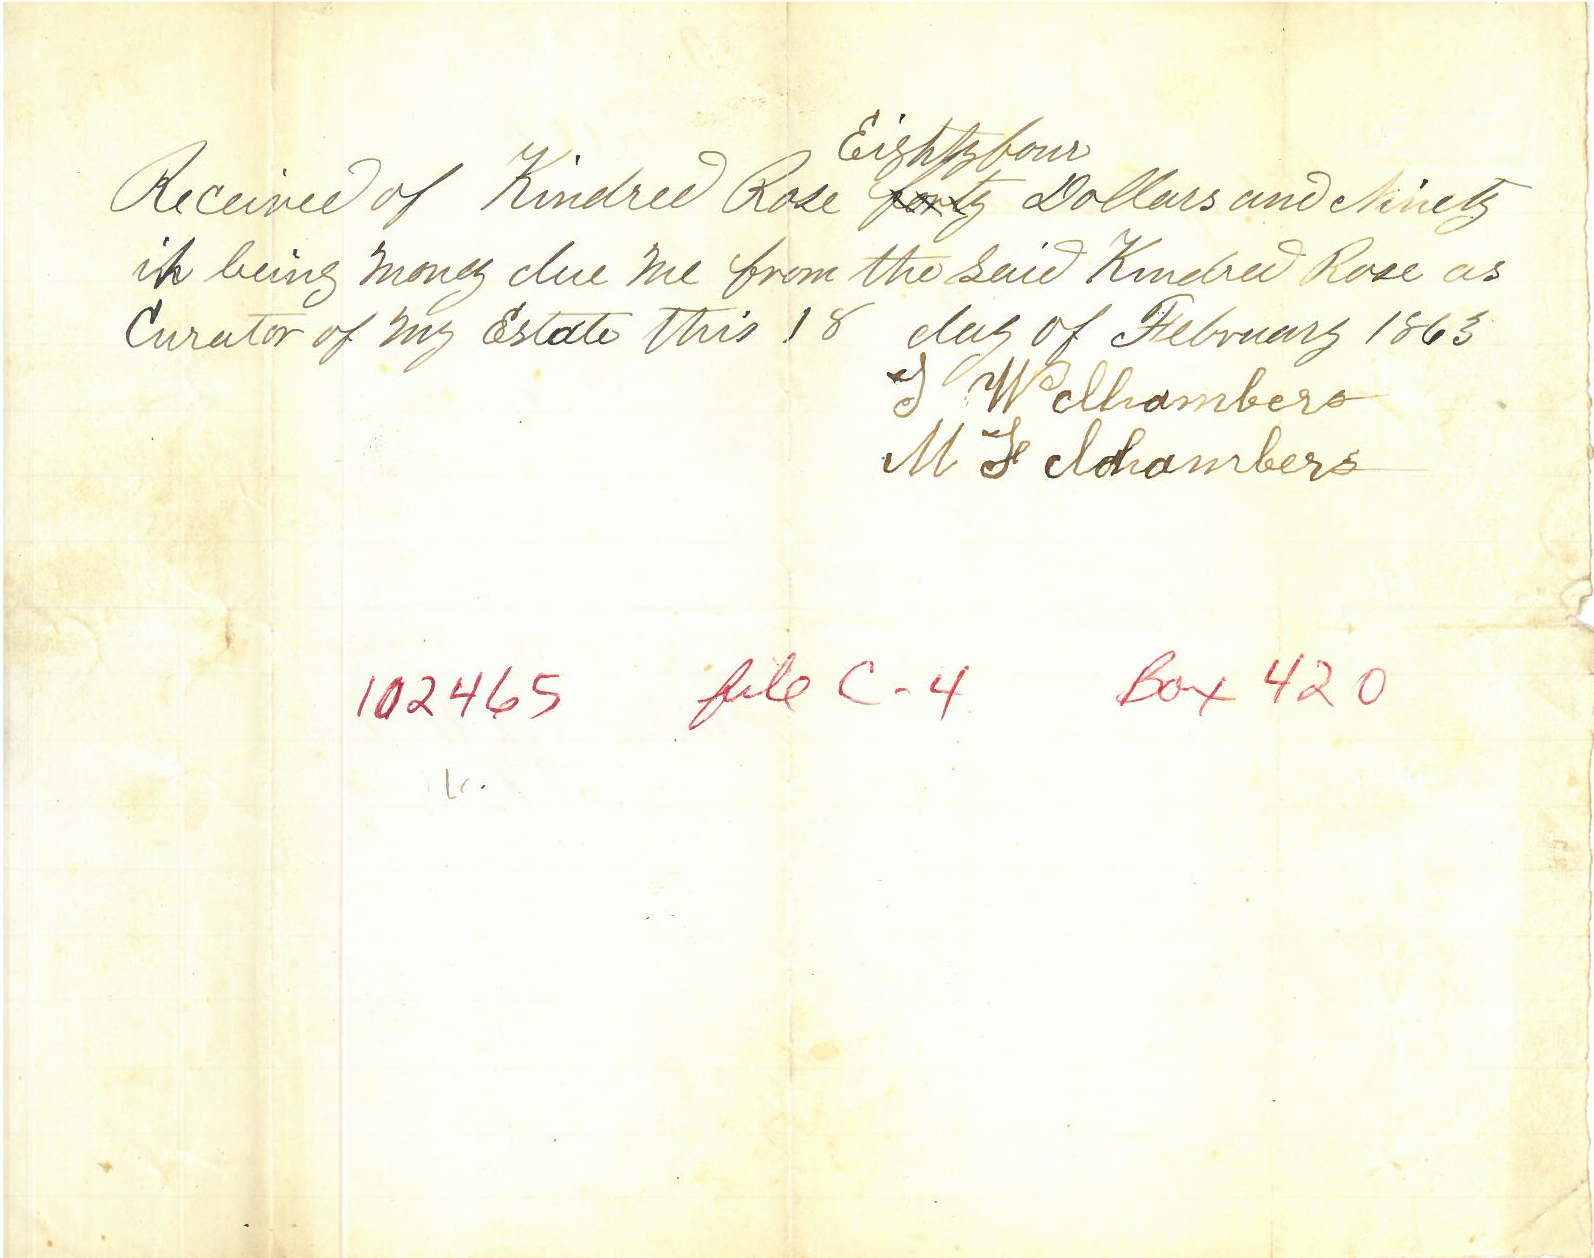 Eighty four
Received of Kindred Rose forty Dollars and Ninety
it being money due me from the said Kindred Rose as
Curator of my Estate this 18 day of February 1863
J W Chambers
M F Chambers
102465 file C-4 Box 420